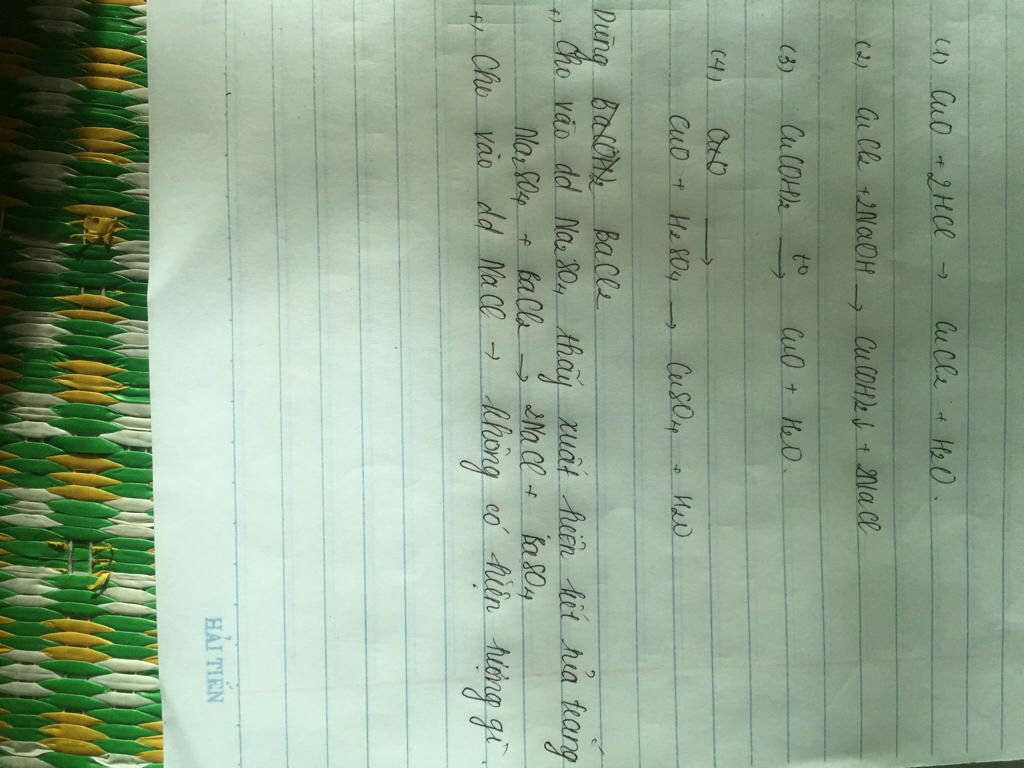 (1) CuO + 2HCl → CuCl2 + H2O.
(2) CuCl2 + 2NaOH → Cu(OH)2↓ + 2NaCl
(3) Cu(OH)2 t0→ CuO + H2O.
(4) CuO →
CuO + H2SO4 → CuSO4 + H2O
Dùng Ba(OH)2 BaCl2.
+) Cho vào dd Na2SO4 thấy xuất hiện kết tủa trắng
Na2SO4 + BaCl2 → 2NaCl + BaSO4
+) Cho vào dd NaCl → không có hiện tượng gì.
HẢI TIẾN